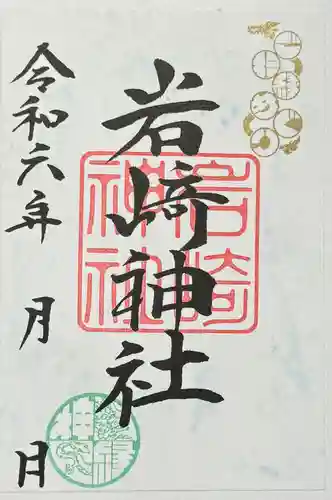 岩崎神社
岩崎
神社
令和六年 月 日